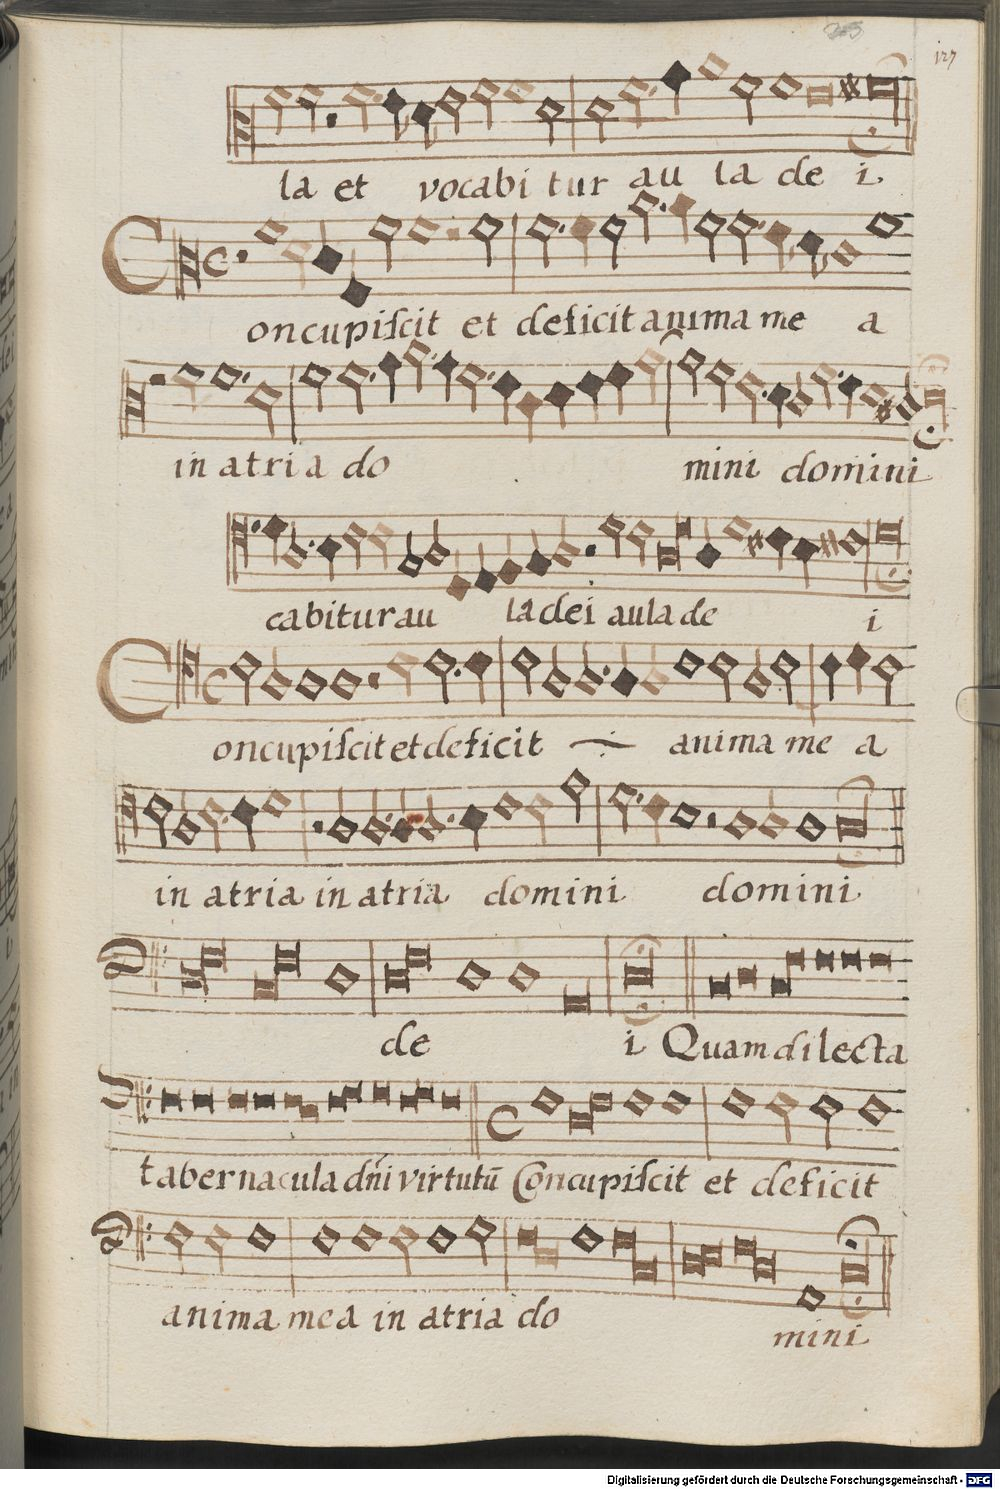 127
la et vocabitur aula dei
Concupiſcit et deficit anima mea
in atria do mini domini
cabitur au la dei aula de i
Concupiſcit et deficit anima mea
in atria in atria domini domini
de i Quam dilecta
tabernacula dñi virtutū Concupiſcit et deficit
anima mea in atria do
mini
Digitalisierung gefördert durch die Deutsche Forschungsgemeinschaft - DFG